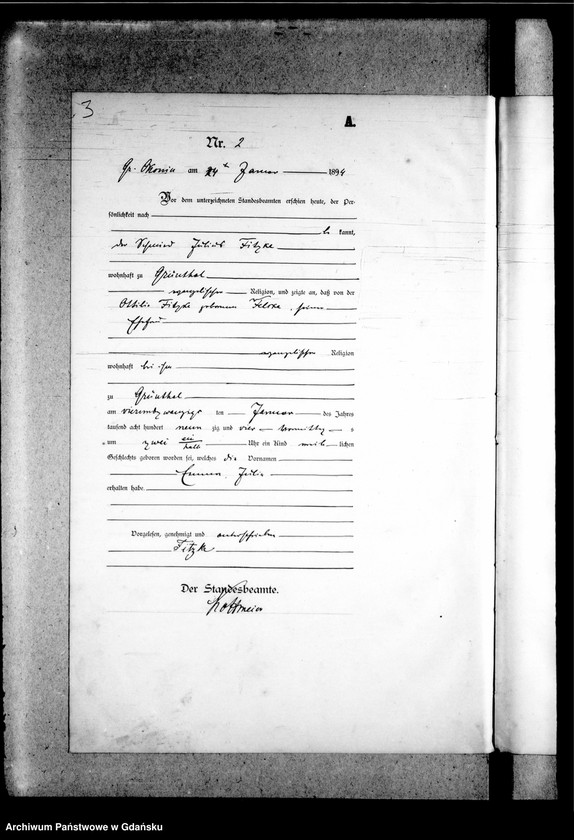 3
A.
Nr. 2
Gr. Okonin am 24 Januar 1894
Vor dem unterzeichneten Standesbeamten erschien heute, der Per-
sönlichkeit nach
be kannt,
der Schmied Julius Fitzke
wohnhaft zu Grünthal
evangelischer Religion, und zeigte an, daß von der
Ottilie Fitzke geborenen, seiner
Ehefrau
evangelischer Religion
wohnhaft bei ihm
zu Grünthal
am vierundzwanzigsten Januar des Jahres
tausend acht hundert neun zig und vier Vormittags
um zwei ein halb Uhr ein Kind weib lichen
Geschlechts geboren worden sei, welches die Vornamen
Emma Julie
erhalten habe
Vorgelesen, genehmigt und unterschrieben
Fitzke
Der Standesbeamte.
Archiwum Państwowe w Gdańsku